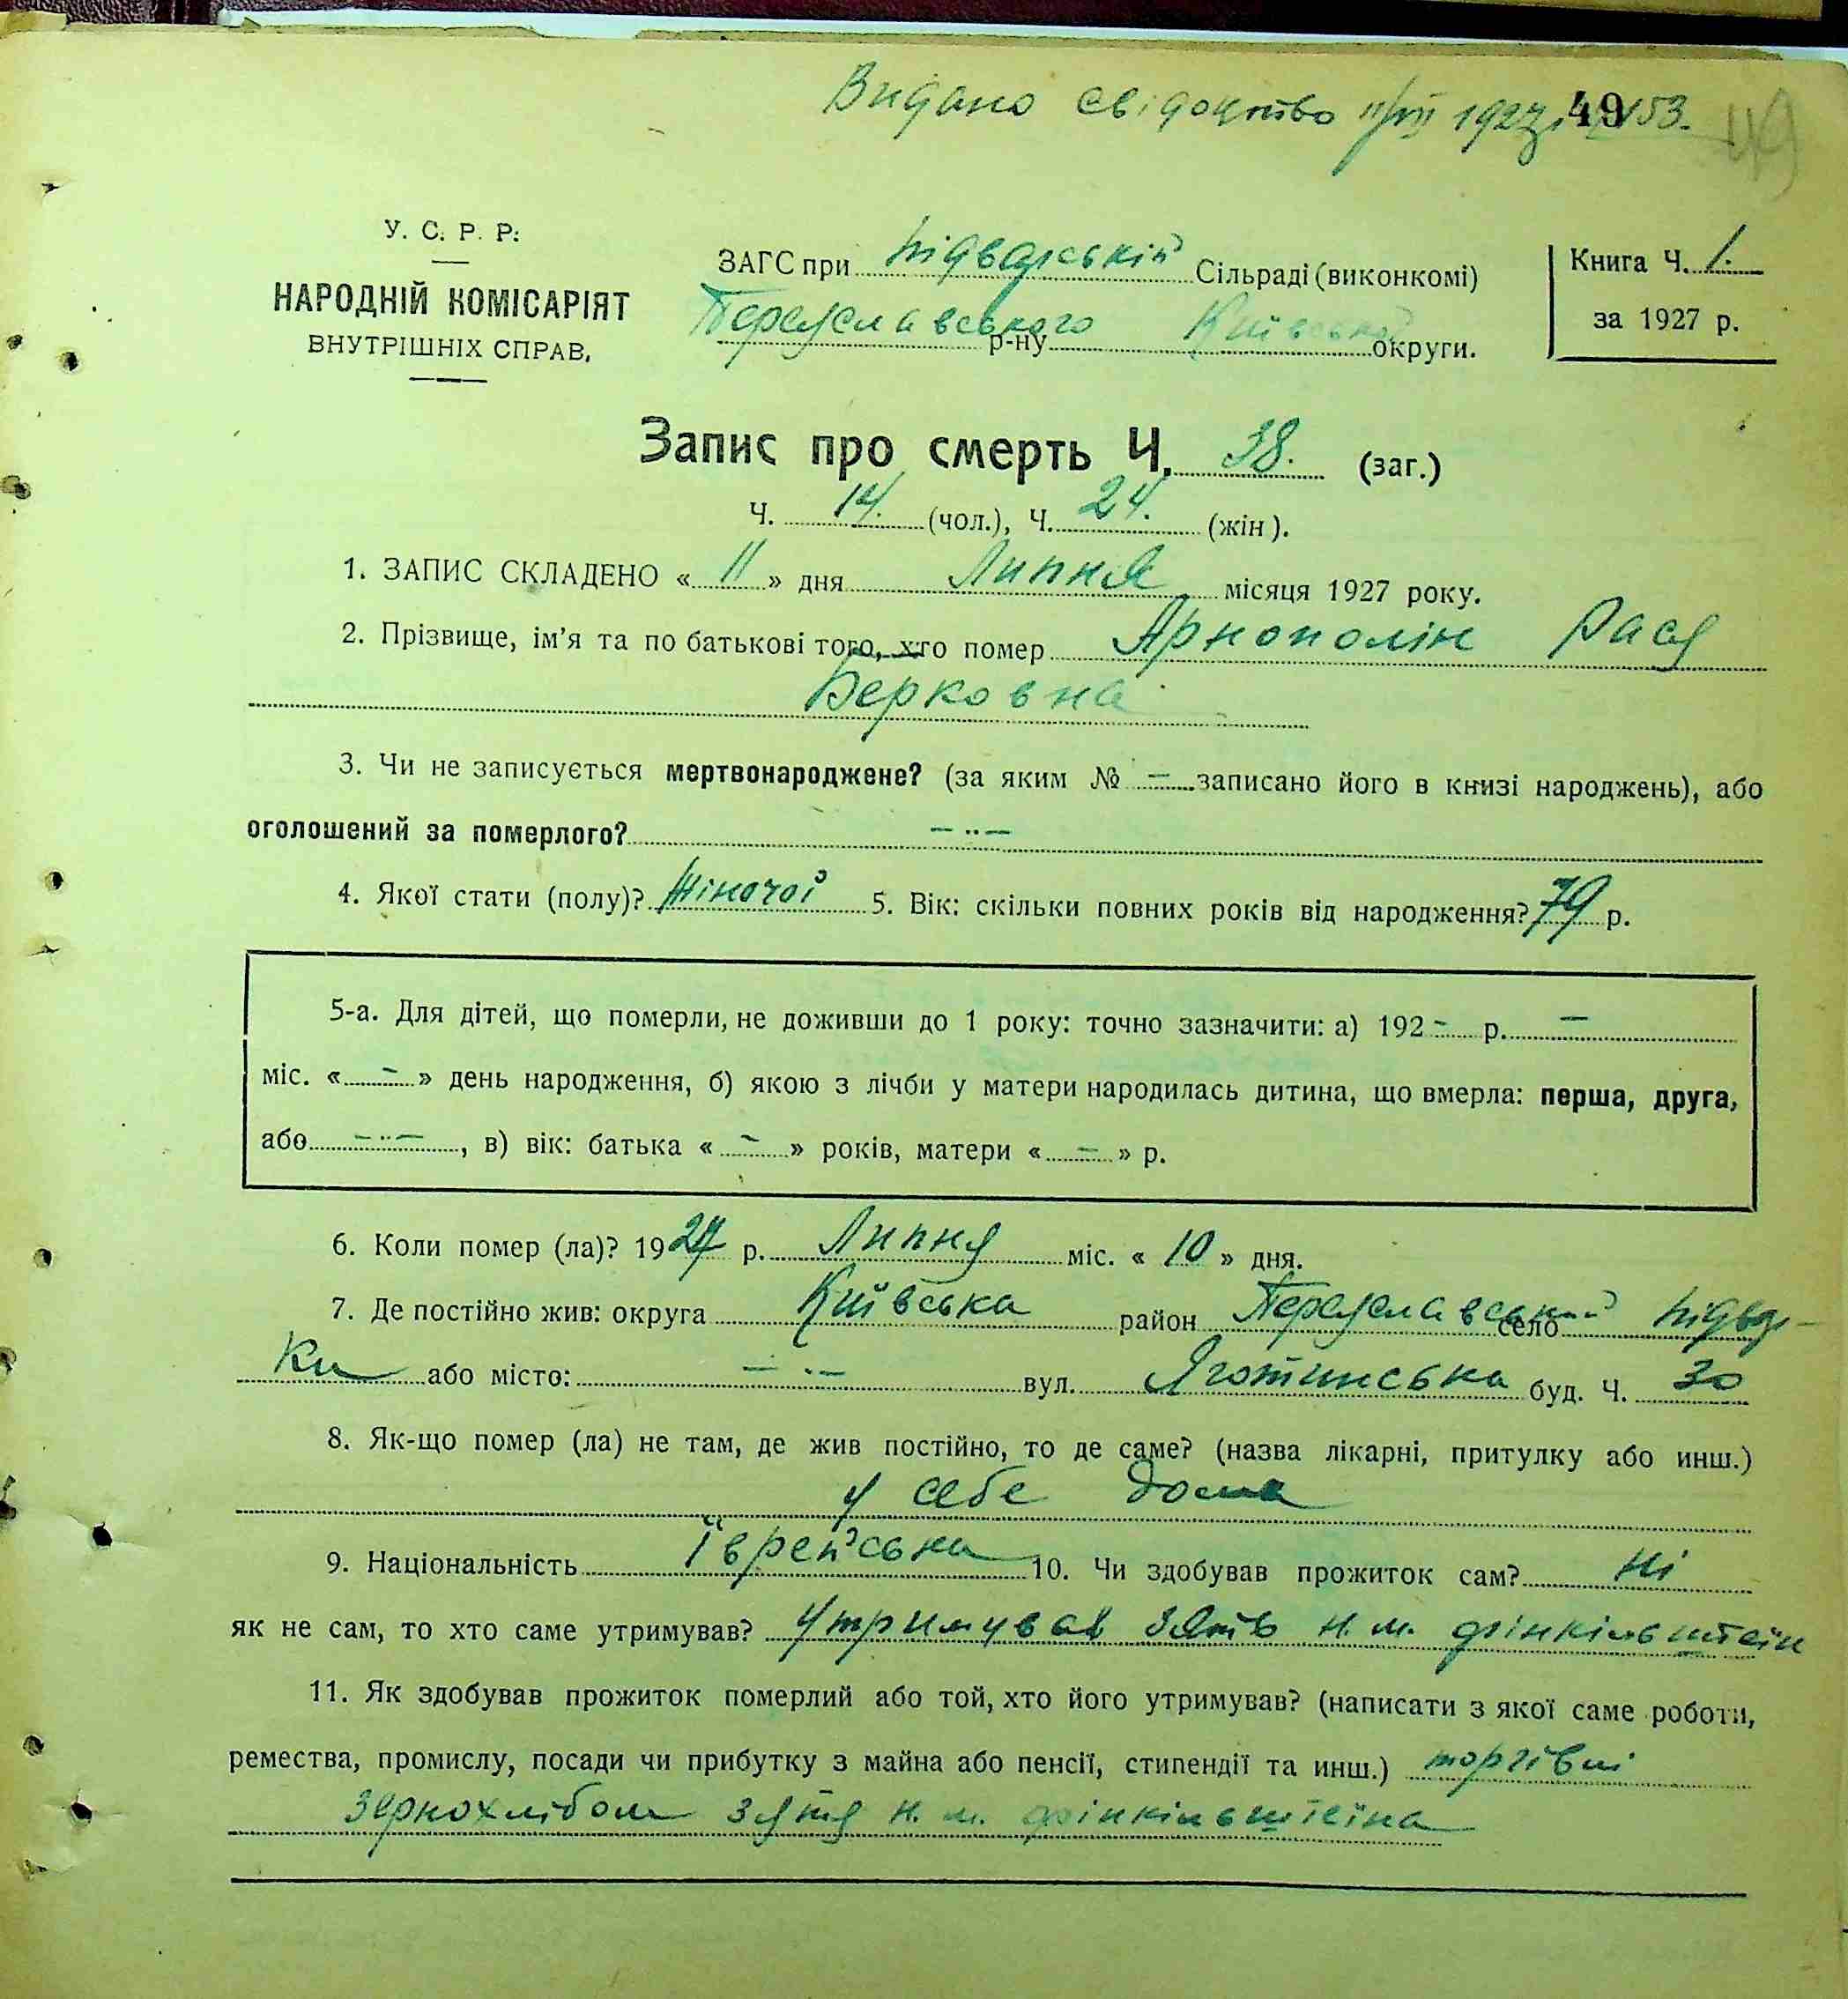 Видано свідоцтво 11/VII 1927 р. 153.
49
49
У. С. Р. Р.
НАРОДНІЙ КОМІСАРІЯТ
ВНУТРІШНІХ СПРАВ.
ЗАГС при Підварській Сільраді (виконкомі)
Переяславського р-ну Київської округи.
Книга Ч. 1.
за 1927 р.
Запис про смерть Ч. 38. (заг.)
Ч. 14. (чол.), Ч. 24. (жін).
1. ЗАПИС СКЛАДЕНО «11» дня Липня місяця 1927 року.
2. Прізвище, ім'я та по батькові того, хто помер Арнополін Рася
Берковна
3. Чи не записується мертвонароджене? (за яким № — записано його в книзі народжень), або
оголошений за померлого? — „ —
4. Якої стати (полу)? Жіночої 5. Вік: скільки повних років від народження? 79 р.
5-а. Для дітей, що померли, не доживши до 1 року: точно зазначити: а) 192 - р. —
міс. « - » день народження, б) якою з лічби у матери народилась дитина, що вмерла: перша, друга,
або — „ —, в) вік: батька « - » років, матери « - » р.
6. Коли помер (ла)? 1927 р. Липня міс. «10» дня.
7. Де постійно жив: округа Київська район Переяславський село Підвар-
ки або місто: — „ — вул. Яготинська буд. Ч. 30
8. Як-що помер (ла) не там, де жив постійно, то де саме? (назва лікарні, притулку або инш.)
у себе дома
9. Національність Їврейська 10. Чи здобував прожиток сам? Ні
як не сам, то хто саме утримував? Утримував зять Н. М. Фінкільштейн
11. Як здобував прожиток померлий або той, хто його утримував? (написати з якої саме роботи,
ремества, промислу, посади чи прибутку з майна або пенсії, стипендії та инш.) торгівлі
зернохлібом зятя Н. М. Фінкільштейна